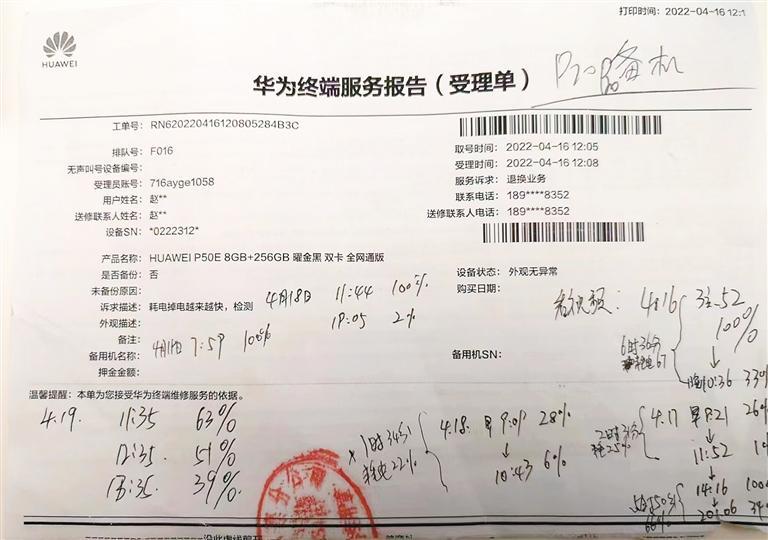 打印时间：2022-04-16 12:1
HUAWEI
华为终端服务报告（受理单）
备机
工单号：RN620220416120805284B3C
排队号：F016
取号时间：2022-04-16 12:05
无声叫号设备编号：
受理时间：2022-04-16 12:08
受理员账号：716ayge1058
服务诉求：退换业务
用户姓名：赵**
联系电话：189****8352
送修联系人姓名：赵**
送修联系人电话：189****8352
设备SN：*0222312*
产品名称：HUAWEI P50E 8GB+256GB 曜金黑 双卡 全网通版
是否备份：否
设备状态：外观无异常
未备份原因：
购买日期：
诉求描述：耗电掉电越来越快，检测
4月18日 11:44 100%
外观描述：
18:05 2%
备注：
7:59 100%
备用机名称：
备用机SN：
押金金额：
看视频：4.16
52
100%
6时36分
耗电67
10:36 33%
温馨提醒：本单为您接受华为终端维修服务的依据。
4.19. 11:35 63%
12:35. 51%
13:35. 39%
1时34分
耗电22%
4.18. 早9:09 28%
10:43 6%
2时31分
耗电25%
4.17 早9:21 26%
11:52
14:16 100
20:06 34%
5时50分
66%